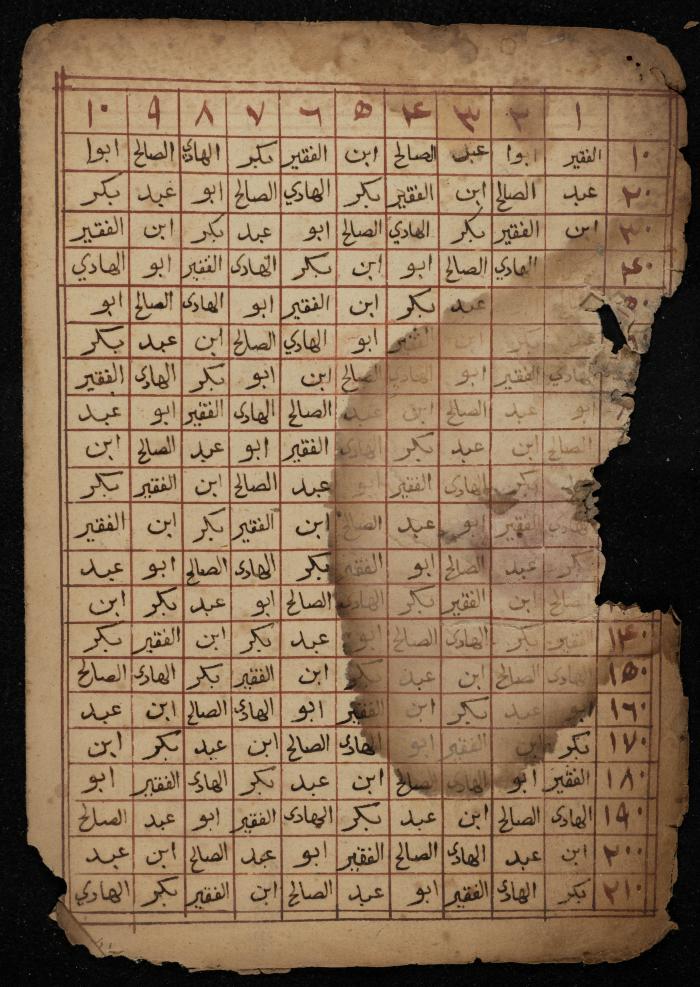 ١ ٢ ٣ ۴ ۵ ٦ ٧ ٨ ٩ ١٠
١٠ الفقير ابوا عبد الصالح ابن الفقير بكر الهادي الصالح ابوا
٢٠ عبد الصالح ابن الفقير بكر الهادي الصالح ابو عبد بكر
٣٠ ابن الفقير بكر الهادي الصالح ابو عبد بكر ابن الفقير
۴٠ الهادي الصالح ابو ابن بكر الهادى الفقير ابو الهادي
۵٠ عبد بكر ابن الفقير ابو الهادى الصالح ابو
ابن الفقير ابو الهادي الصالح ابن عبد بكر
الهادي الفقير ابو الهادي الصالح ابن ابو بكر الهادى الفقير
ابو عبد الصالح ابن عبد الصالح الهادى الفقير ابو عبد
الصالح ابن عبد بكر الهادى الفقير ابو عبد الصالح ابن
بكر الهادى الفقير ابو عبد الصالح ابن الفقير بكر
الهادى الفقير ابو عبد الصالح ابن الفقير بكر ابن الفقير
بكر عبد الصالح ابو الفقير بكر الهادى الصالح ابو عبد
الصالح ابن الفقير بكر الهادى الصالح ابو عبد بكر ابن
١۴٠ الفقير بكر الهادى الصالح ابو عبد بكر ابن الفقير بكر
١۵٠ الهادى الصالح ابن عبد بكر ابن الفقير بكر الهادى الصالح
١٦٠ ابو عبد بكر ابن الفقير ابو الهادى الصالح ابن عبد
١٧٠ بكر ابن الفقير ابو الهادى الصالح ابن عبد بكر ابن
١٨٠ الفقير ابو الهادى الصالح ابن عبد بكر الهادى الفقير ابو
١٩٠ الهادى الصالح ابن عبد بكر الهادى الفقير ابو عبد الصالح
٢٠٠ ابن عبد الهادى الصالح الفقير ابو عبد الصالح ابن عبد
٢١٠ بكر الهادى الفقير ابو عبد الصالح ابن الفقير بكر الهادي